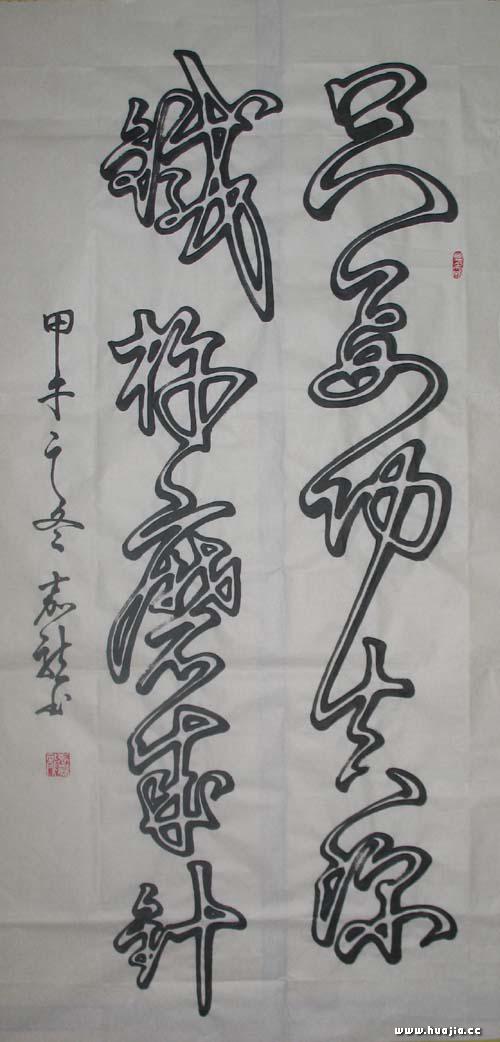 只要功夫深
鐵杵磨成針
甲午之冬 书
www.huajia.cc